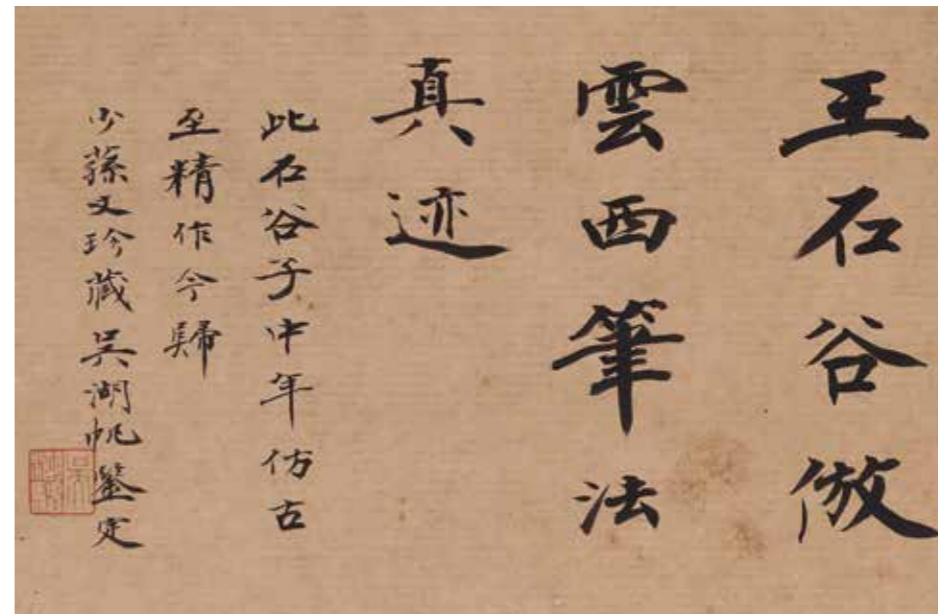 王石谷倣
雲西筆法
真迹
此石谷子中年仿古
至精作今歸
少蓀文珍藏吴湖帆鑒定